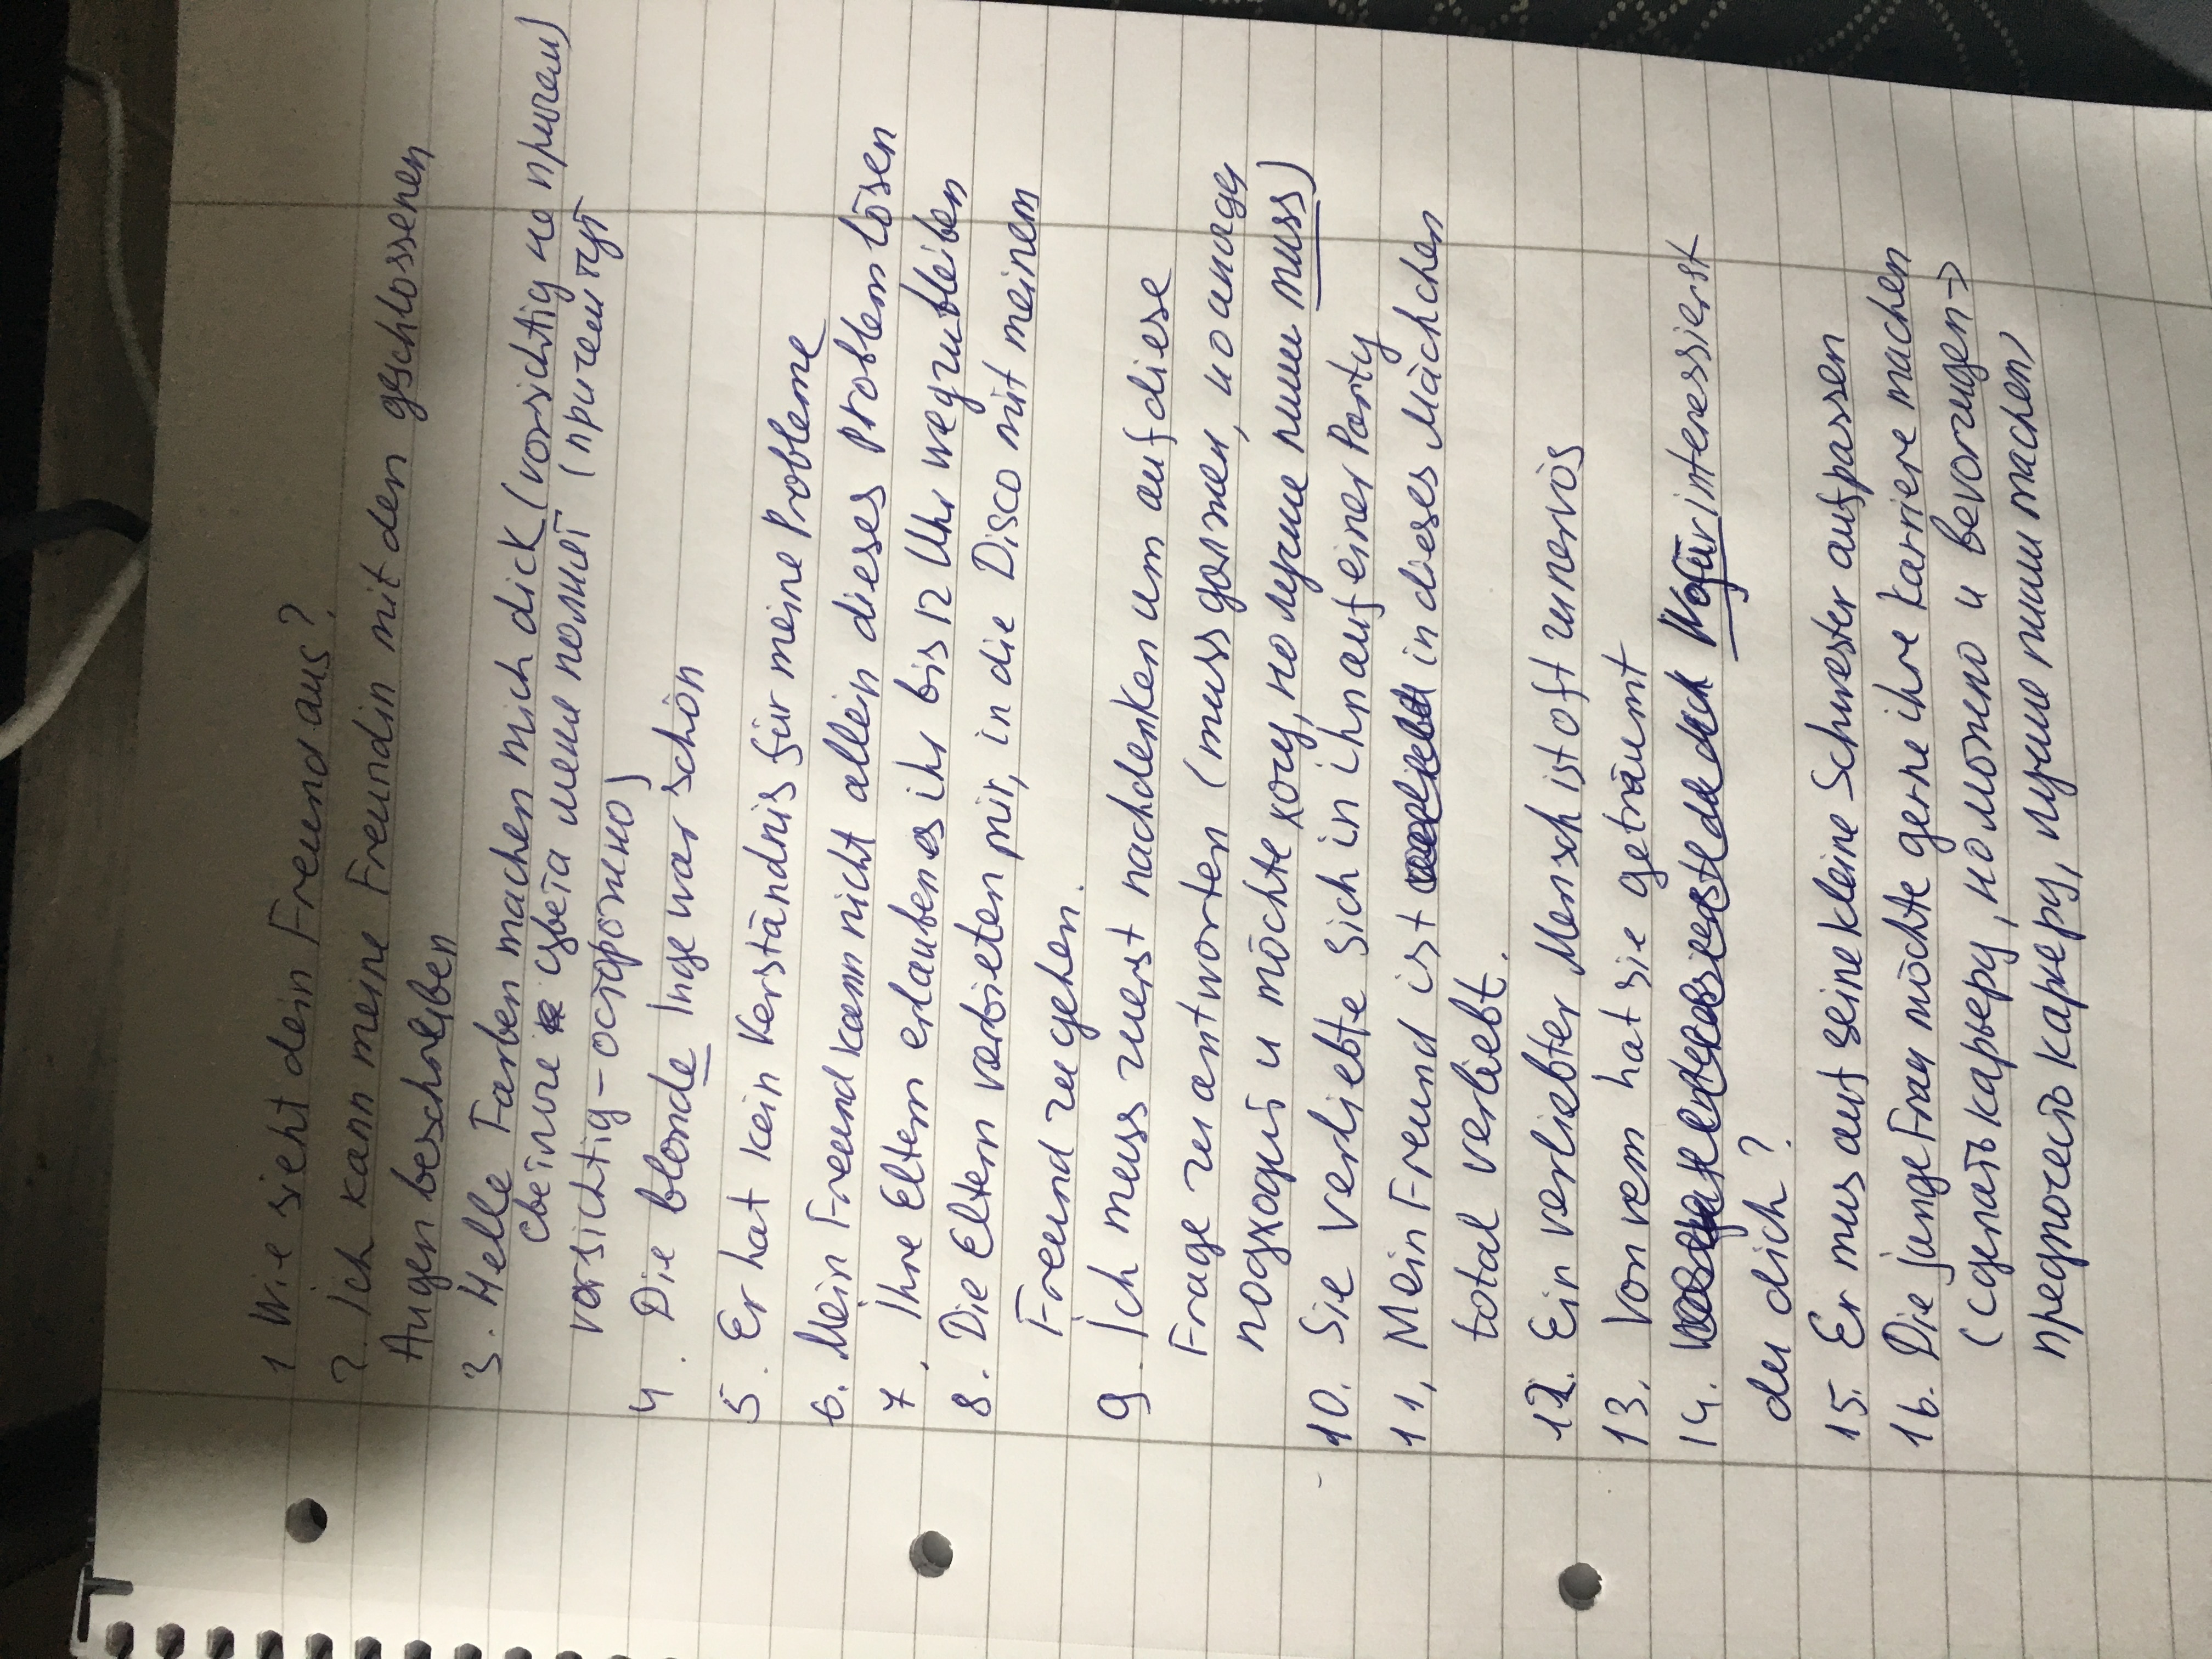 1 Wie sieht dein Freund aus?
2. Ich kann meine Freundin mit den geschlossenen
Augen beschreiben
3. Helle Farben machen mich dick (vorsichtig не причем)
светлые цвета меня полнят (причем тут
vorsichtig - осторожно)
4. Die blonde Inge war schön
5. Er hat kein Verständnis für meine Probleme
6. Mein Freund kann nicht allein dieses Problem lösen
7. Ihre Eltern erlauben es ihr bis 12 Uhr wegzubleiben
8. Die Eltern verbieten mir, in die Disco mit meinem
Freund zu gehen.
9. Ich muss zuerst nachdenken um auf diese
Frage zu antworten (muss должен, но
подходит и möchte хочу, но лучше пиши muss)
10. Sie verliebte sich in ihn auf einer Party
11, Mein Freund ist in dieses Mächchen
total verliebt.
12. Ein verliebter Mensch ist oft nervös
13. Von wem hat sie geträumt
14. Wofür interessierst
du dich?
15. Er mus auf seine kleine Schwester aufpassen
16. Die junge Frau möchte gerne ihre karriere machen
(сделать карьеру, но можно и bevorzugen →
предпочесть карьеру, лучше пиши machen)